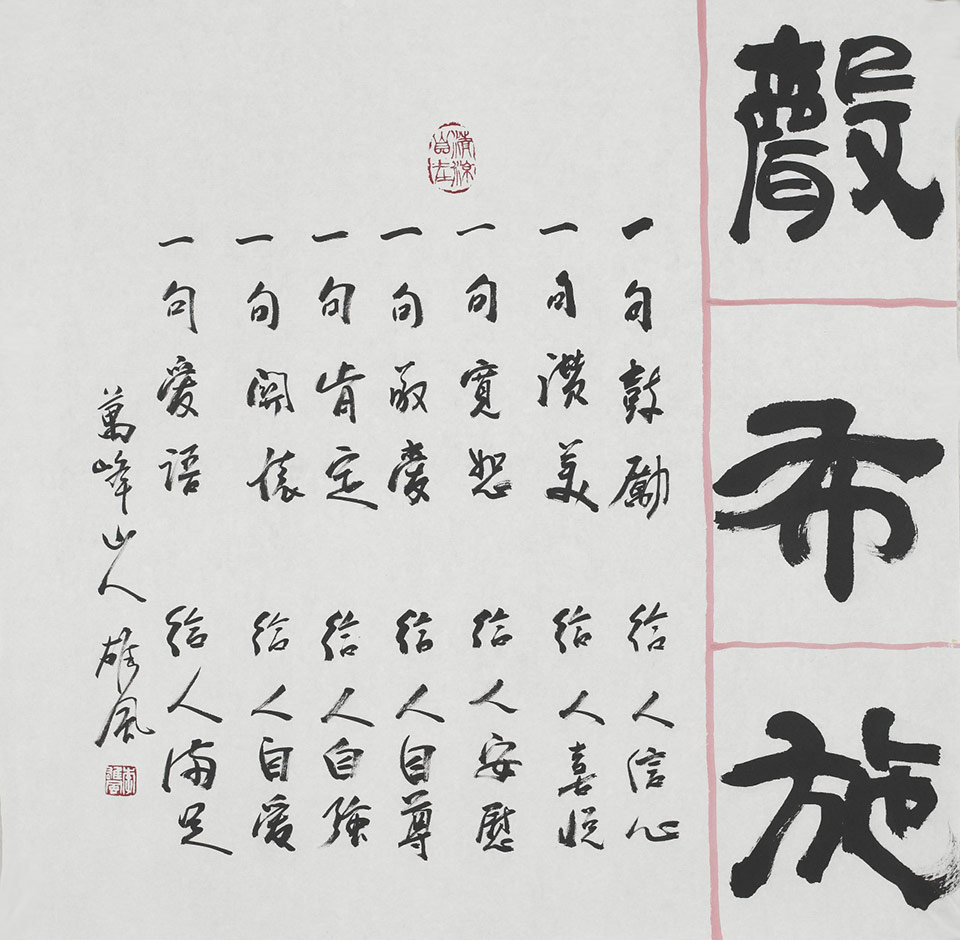 聲布施
一句鼓勵 給人信心
一句讚美 給人喜悅
一句寬恕 給人安慰
一句敬愛 給人自尊
一句肯定 給人自強
一句關懷 給人自愛
一句愛語 給人滿足
萬峰山人 雄風
清涼自在